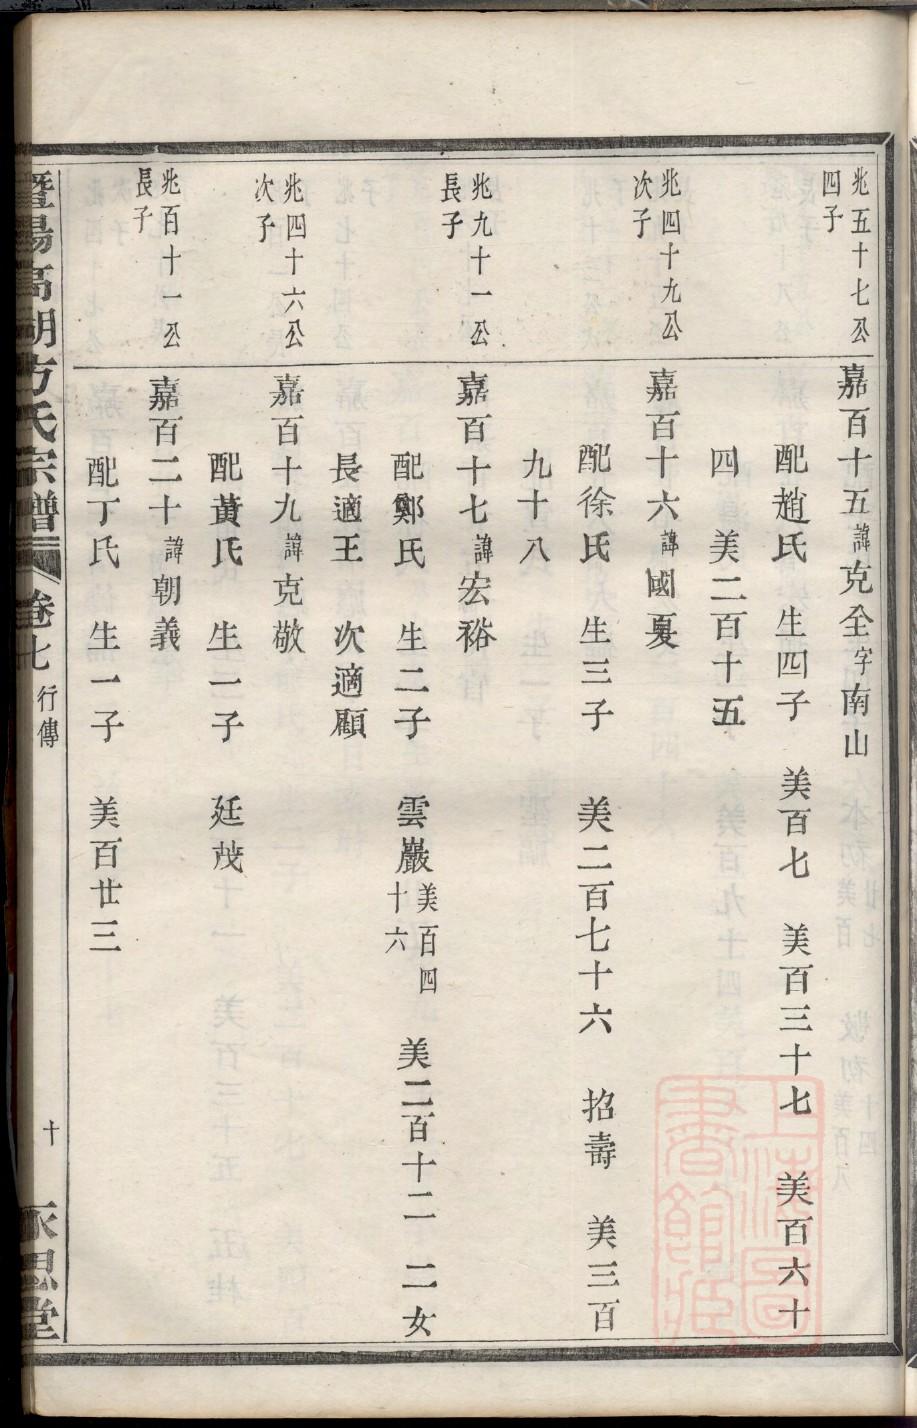 兆五十七公
四子
嘉百十五諱克全字南山
配趙氏 生四子 美百七 美百三十七 美百六十
四 美二百十五
兆四十九公
次子
嘉百十六諱國夏
配徐氏 生三子 美二百七十六 招壽 美三百
九十八
兆九十一公
長子
嘉百十七諱宏裕
配鄭氏 生二子 雲巖美百四十六 美二百十二 二女
長適王 次適顧
兆四十六公
次子
嘉百十九諱克敬
配黃氏 生一子 廷茂
兆百十一公
長子
嘉百二十諱朝義
配丁氏 生一子 美百廿三
暨陽高湖方氏宗譜 卷七 行傳 十 永思堂
上海圖書館藏